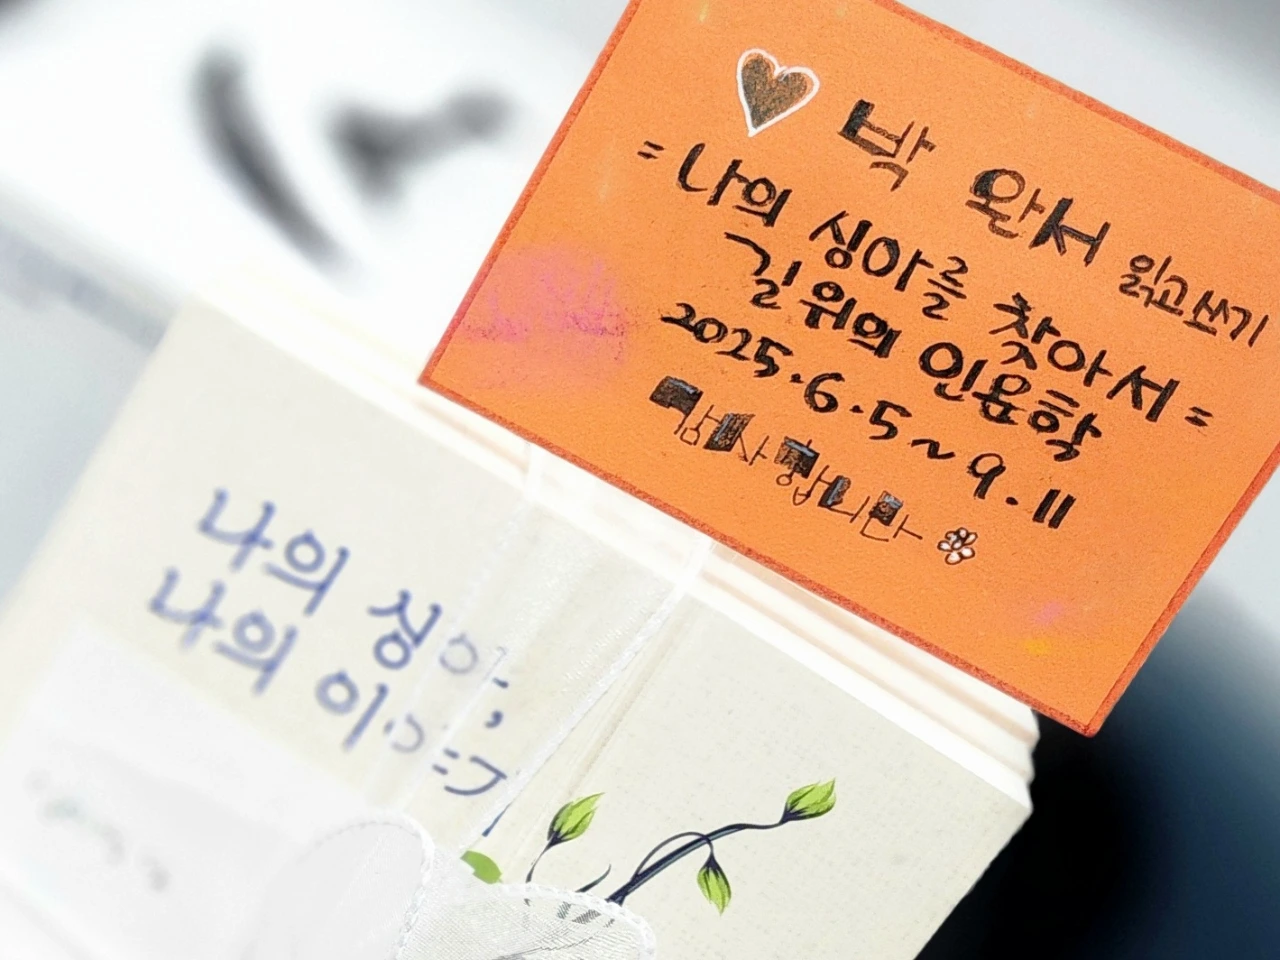 박 완서 읽고쓰기
= 나의 싱아를 찾아서 =
길 위의 인문학
2025.6.5~9.11
나의 싱아,
나의 이야기